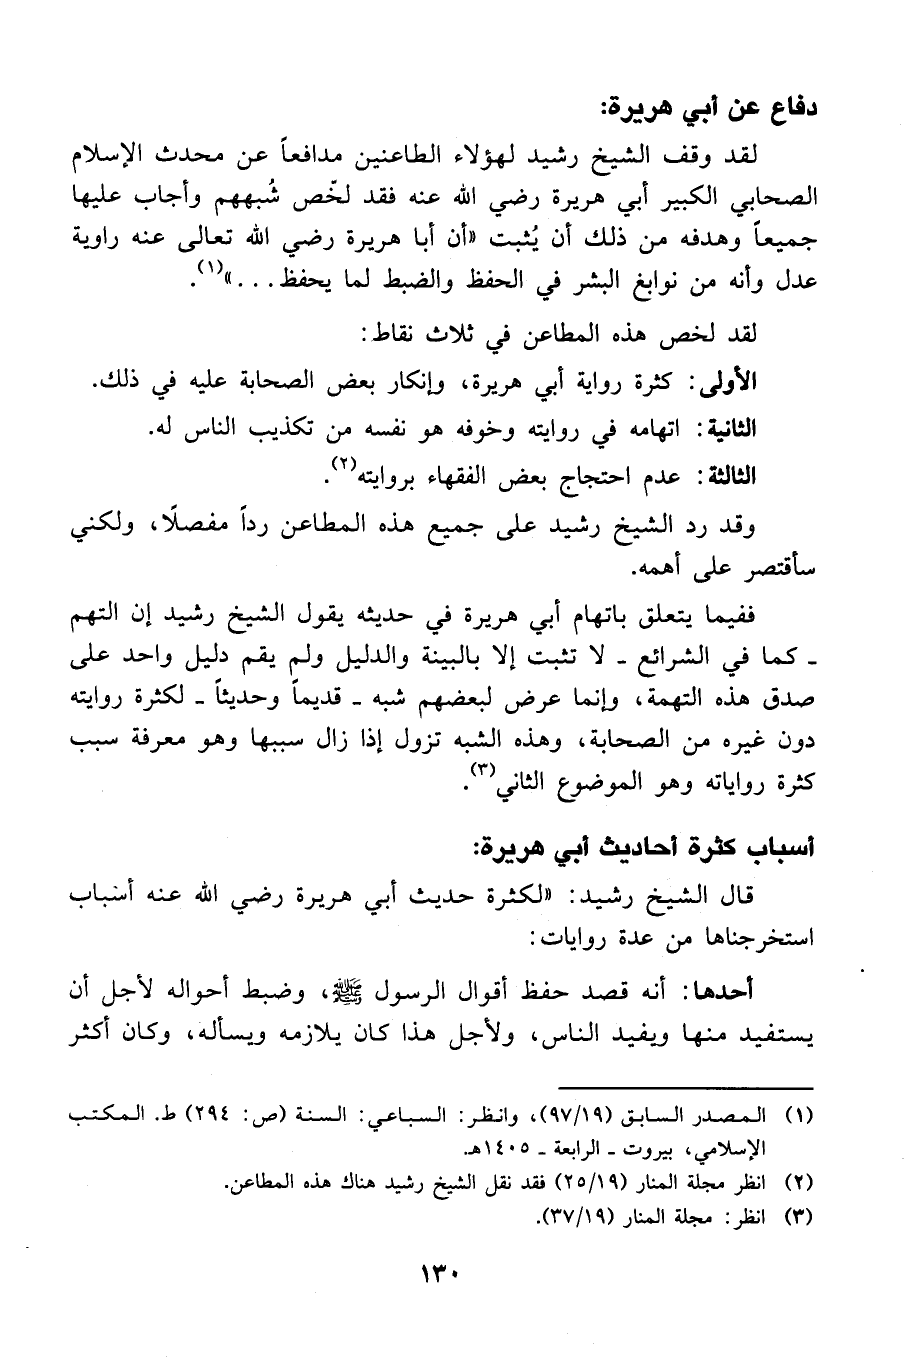 دفاع عن أبي هريرة:
لقد وقف الشيخ رشيد لهؤلاء الطاعنين مدافعاً عن محدث الإسلام
الصحابي الكبير أبي هريرة رضي الله عنه فقد لخّص شُبههم وأجاب عليها
جميعاً وهدفه من ذلك أن يُثبت «أن أبا هريرة رضي الله تعالى عنه راوية
عدل وأنه من نوابغ البشر في الحفظ والضبط لما يحفظ...»(١).
لقد لخص هذه المطاعن في ثلاث نقاط:
الأولى: كثرة رواية أبي هريرة، وإنكار بعض الصحابة عليه في ذلك.
الثانية: اتهامه في روايته وخوفه هو نفسه من تكذيب الناس له.
الثالثة: عدم احتجاج بعض الفقهاء بروايته(٢).
وقد رد الشيخ رشيد على جميع هذه المطاعن رداً مفصلًا، ولكني
سأقتصر على أهمه.
ففيما يتعلق باتهام أبي هريرة في حديثه يقول الشيخ رشيد إن التهم
ـ كما في الشرائع ـ لا تثبت إلا بالبينة والدليل ولم يقم دليل واحد على
صدق هذه التهمة، وإنما عرض لبعضهم شبه ـ قديماً وحديثاً ـ لكثرة روايته
دون غيره من الصحابة، وهذه الشبه تزول إذا زال سببها وهو معرفة سبب
كثرة رواياته وهو الموضوع الثاني(٣).
أسباب كثرة أحاديث أبي هريرة:
قال الشيخ رشيد: «لكثرة حديث أبي هريرة رضي الله عنه أسباب
استخرجناها من عدة روايات:
أحدها: أنه قصد حفظ أقوال الرسول ﷺ، وضبط أحواله لأجل أن
يستفيد منها ويفيد الناس، ولأجل هذا كان يلازمه ويسأله، وكان أكثر
(١) المصدر السابق (٩٧/١٩)، وانظر: السباعي: السنة (ص: ٢٩٤) ط. المكتب
الإسلامي، بيروت ـ الرابعة ـ ١٤٠٥هـ.
(٢) انظر مجلة المنار (٢٥/١٩) فقد نقل الشيخ رشيد هناك هذه المطاعن.
(٣) انظر: مجلة المنار (٣٧/١٩).
١٣٠